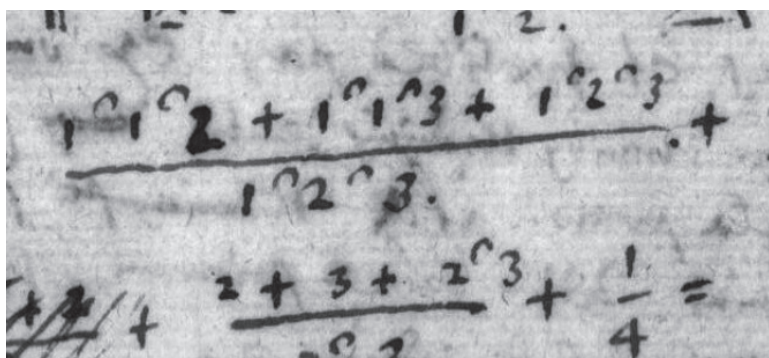 1 2.
1⌒1⌒2 + 1⌒1⌒3 + 1⌒2⌒3. +
1⌒2⌒3.
+ 2 + 3 + 2⌒3 + 1/4 =